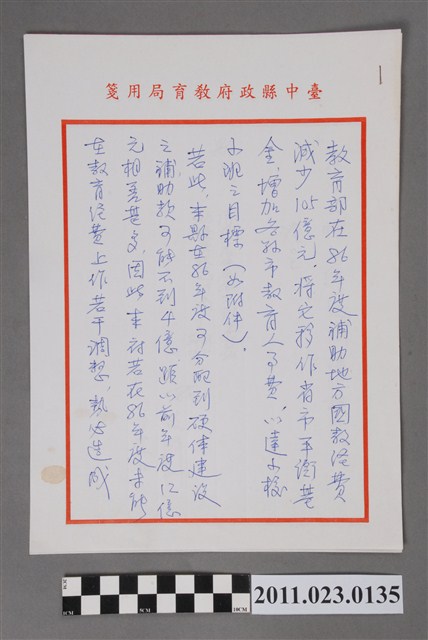 臺中縣政府教育局用箋
教育部在86年度補助地方國教經費
減少105億元，將它移作省市平衡基
金，增加各縣市教育人事費，以達小校
小班之目標（如附件）。
若此，本縣在86年度可分配到硬体建設
之補助款可能不到4億，跟以前年度12億
元相差甚多，因此本府若在86年度未能
在教育經費上作若干調整，勢必造成
1CM
5CM
10CM
2011.023.0135